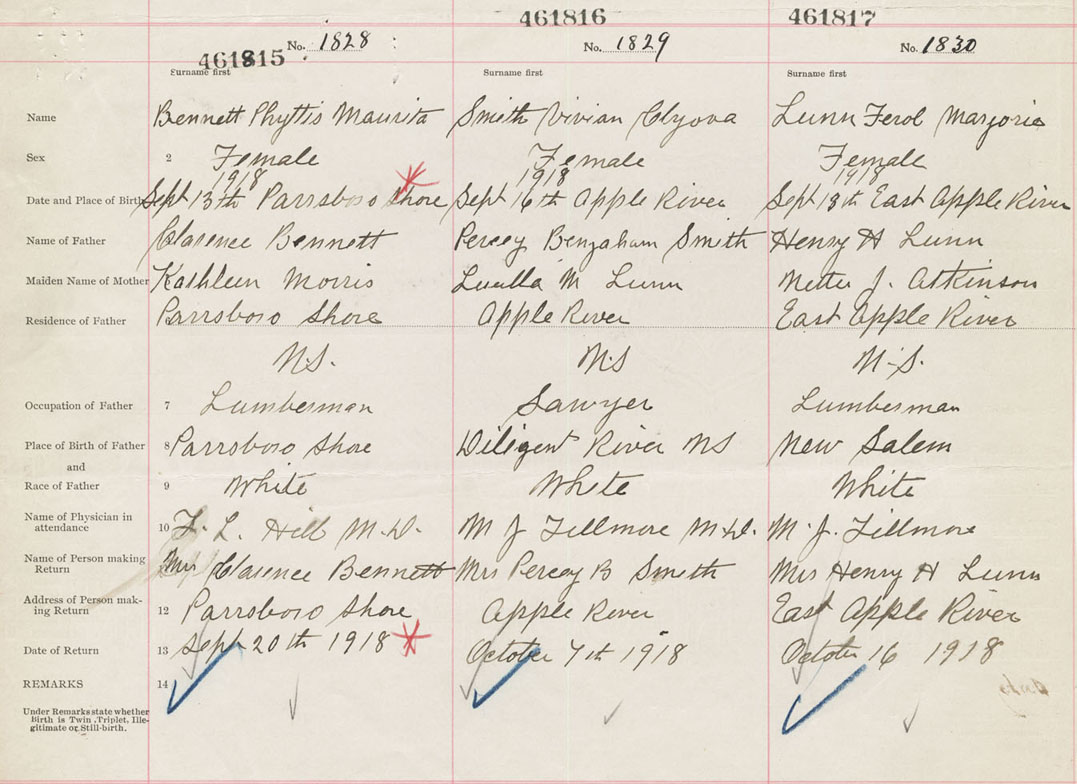 461815 461816 461817
No. 1828 No. 1829 No. 1830
Surname first Surname first Surname first
Name Bennett Phyllis Maurita Smith Vivian Lunn Ferol Marjorie
Sex 2 Female Female Female
1918 1918 1918
Date and Place of Birth Sept 13th Parrsboro Shore Sept 16th Apple River Sept 13th East Apple River
Name of Father Clarence Bennett Percey Smith Henry H Lunn
Maiden Name of Mother Kathleen Morris Luella M Lunn J. Atkinson
Residence of Father Parrsboro Shore Apple River East Apple River
N.S. N.S N.S.
Occupation of Father 7 Lumberman Sawyer Lumberman
Place of Birth of Father 8 Parrsboro Shore Diligent River NS New Salem
and
Race of Father 9 White White White
Name of Physician in
attendance 10 L. Hill M.D. M J Fillmore M.D. M. J. Fillmore
Name of Person making
Return Mrs Clarence Bennett Mrs Percey B Smith Mrs Henry H Lunn
Address of Person mak-
ing Return 12 Parrsboro Shore Apple River East Apple River
Date of Return 13 Sept 20th 1918 October 7th 1918 October 16 1918
REMARKS 14
Under Remarks state whether
Birth is Twin, Triplet, Ille-
gitimate or Still-birth.